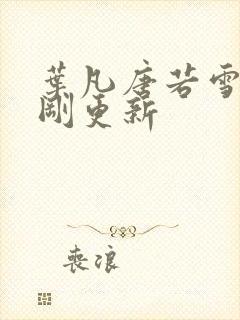 葉凡唐若雪
剛更新
喪浪